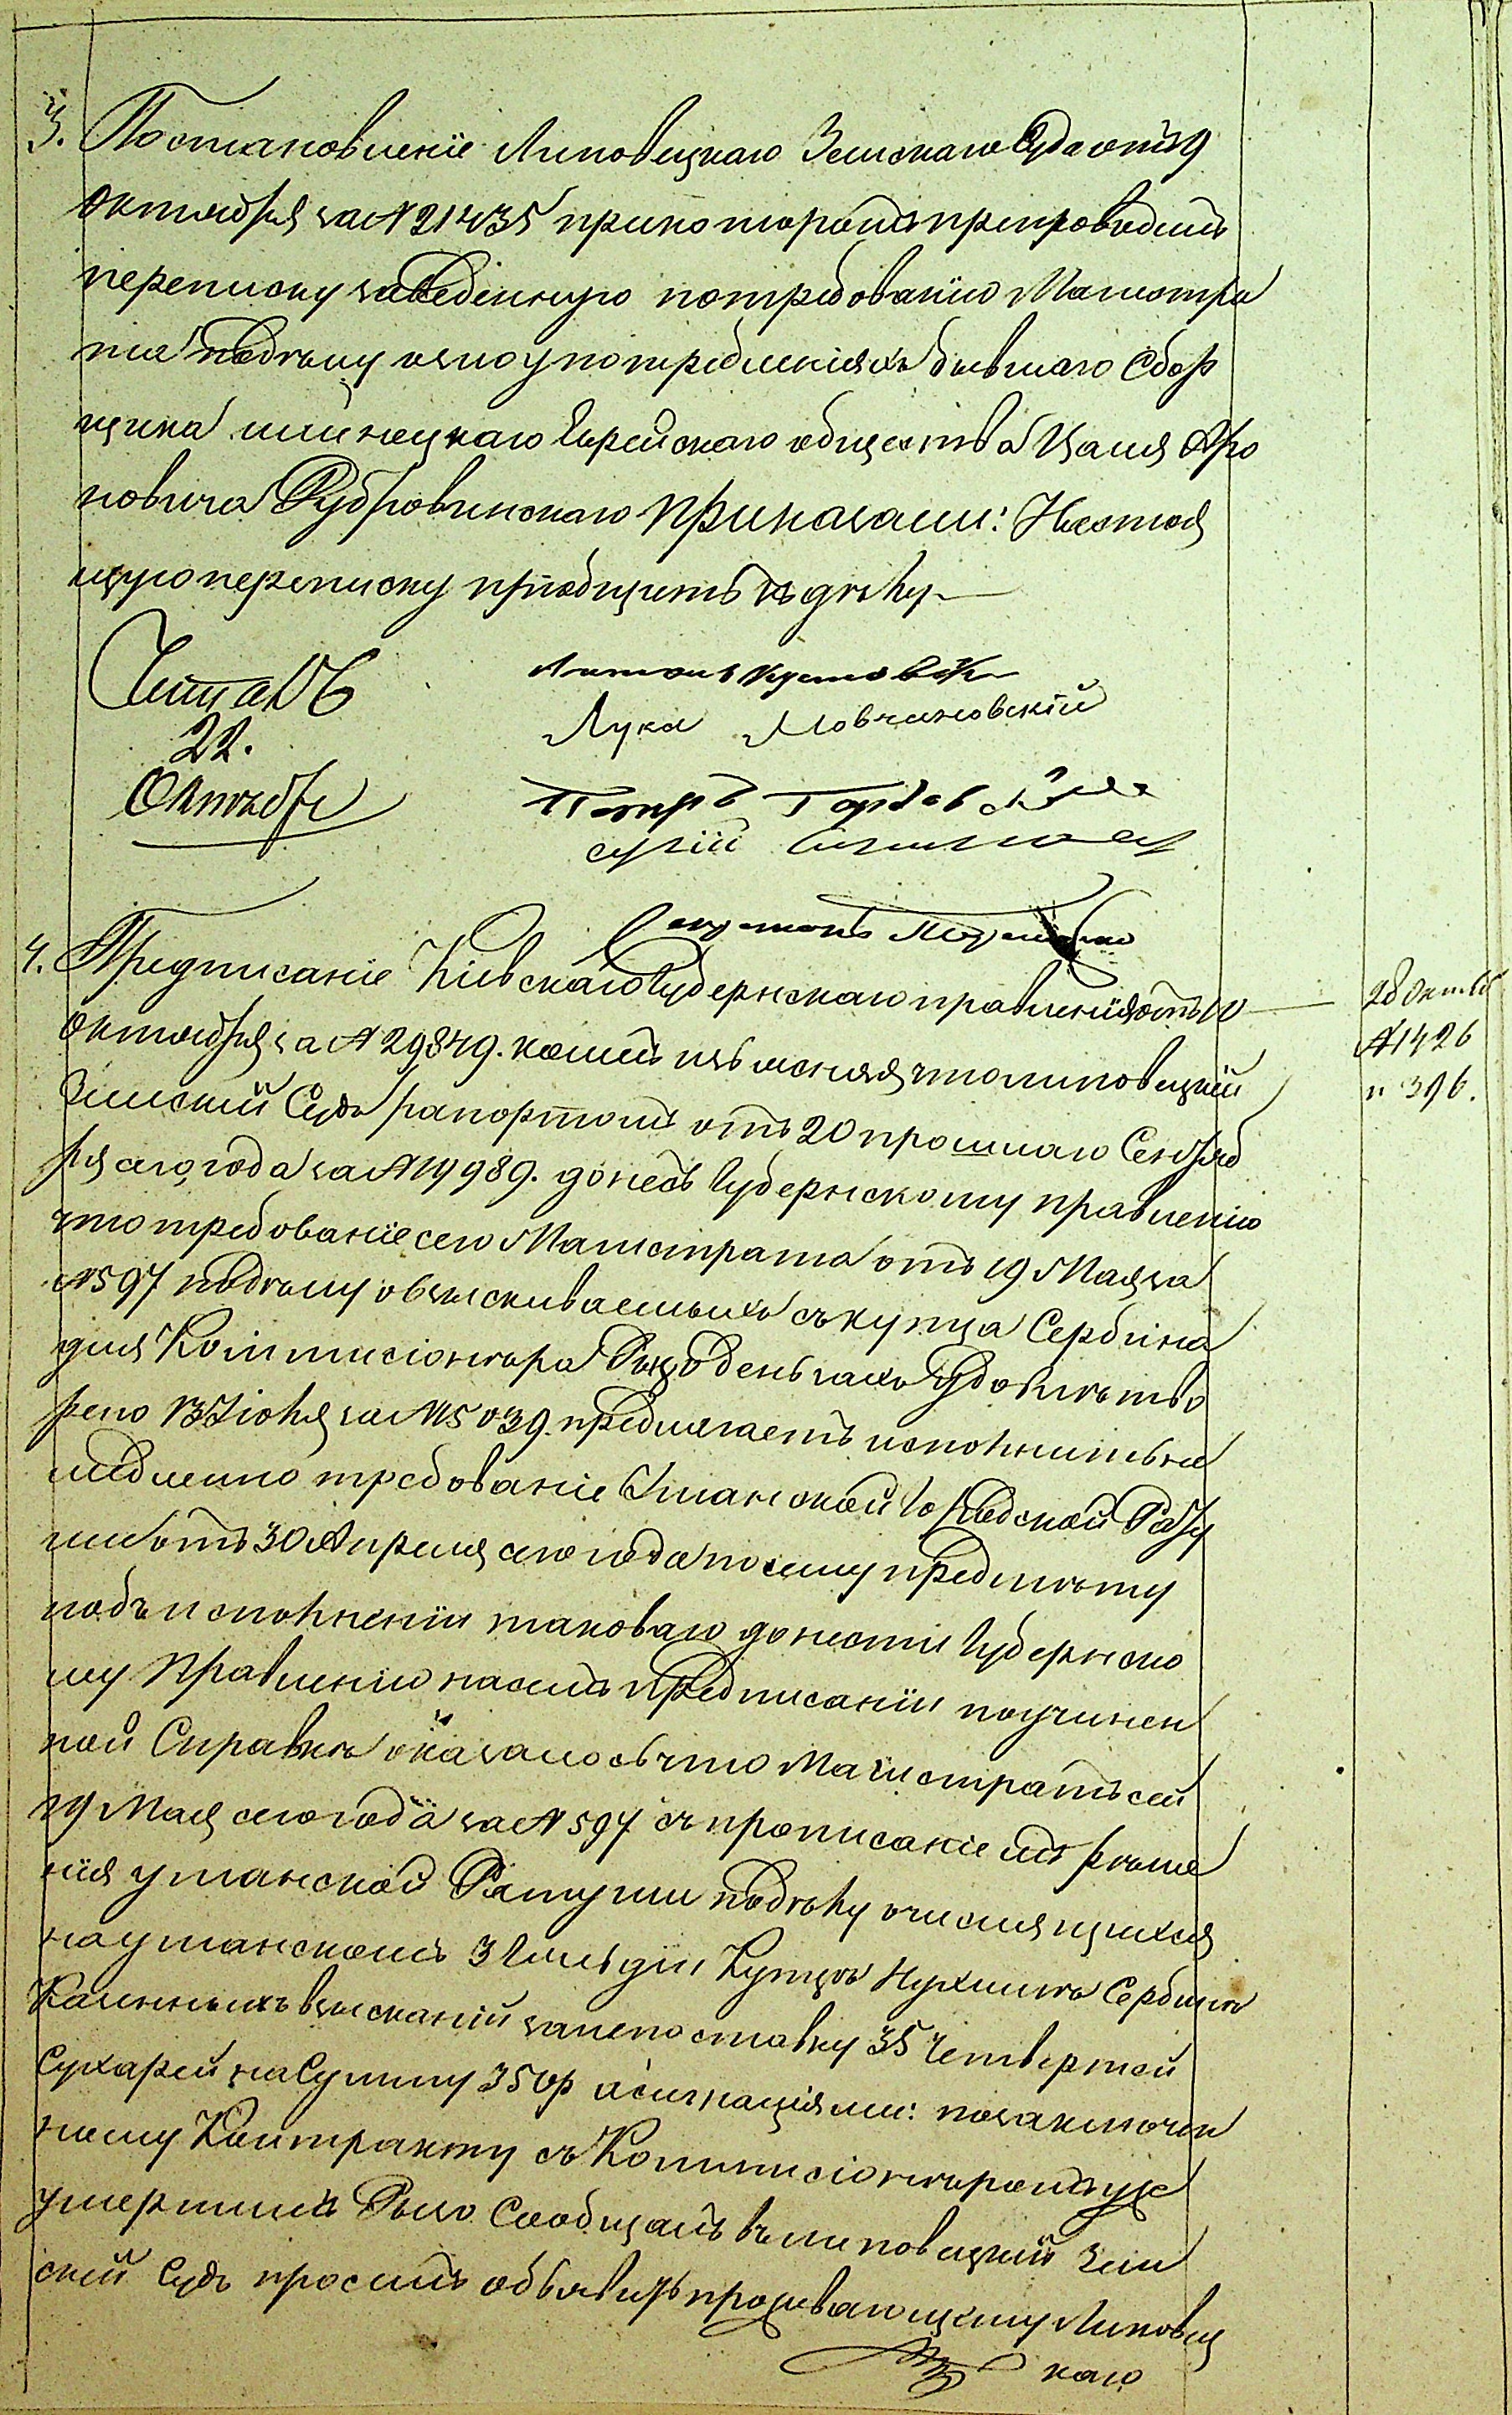 3. Постановленіе Липовецкаго Земскаго Суда отъ 9
Октября за № 21435 при которомъ препроводилъ
переписку заведенную по требованію Магистра
та по дѣлу о злоупотребленіяхъ бывшаго Сбор
щика илинецкаго Еврейскаго общества Цаля Аро
новича Дубровинскаго Приказали: Настоя
щую переписку пріобщить къ дѣлу
Читалъ
22.
Октября
Лука Мовчановскій
Петръ
4. Предписаніе Кіевскаго Губернскаго правленія отъ 10
28 Октяб
Октября за № 29849. коимъ изъясняя что липовецкій
№ 1426
Земскій Судъ рапортомъ отъ 20 прошлаго Сентяб
и 396.
ря сего года за № 19989. донесъ Губернскому правленію
что требованіе сего Магистрата отъ 19 Мая за
№ 597 по дѣлу о взыскиваемыхъ съ купца Сербина
для Коммисіонера деньгахъ Удовлетво
рено 13 Іюня за № 15039. предлагаетъ исполнить не
медленно требованіе Уманской Городской Рату
ши отъ 30 Апреля сего года по сему предмѣту
и объ исполненіи таковаго донести Губернско
му Правленію на семъ Предписаніи по учинен
ной Справкѣ оказалось что Магистратъ сей
19 Мая сего года за № 597 съ прописаніемъ рѣше
нія уманской Ратуши по дѣлу о числящихся
на уманскомъ 3 Гильдіи Купцѣ Нухимѣ Сербинѣ
Казенныхъ взысканій за непоставку 35 Четвертей
Сухарей на Сумму 350 р асигнаціями: по заключен
ному Контракту съ Коммисіонеромъ уже
умершимъ Сообщалъ въ липовецкій Зем
скій Судъ просилъ объявить проживающему Липовец
каго